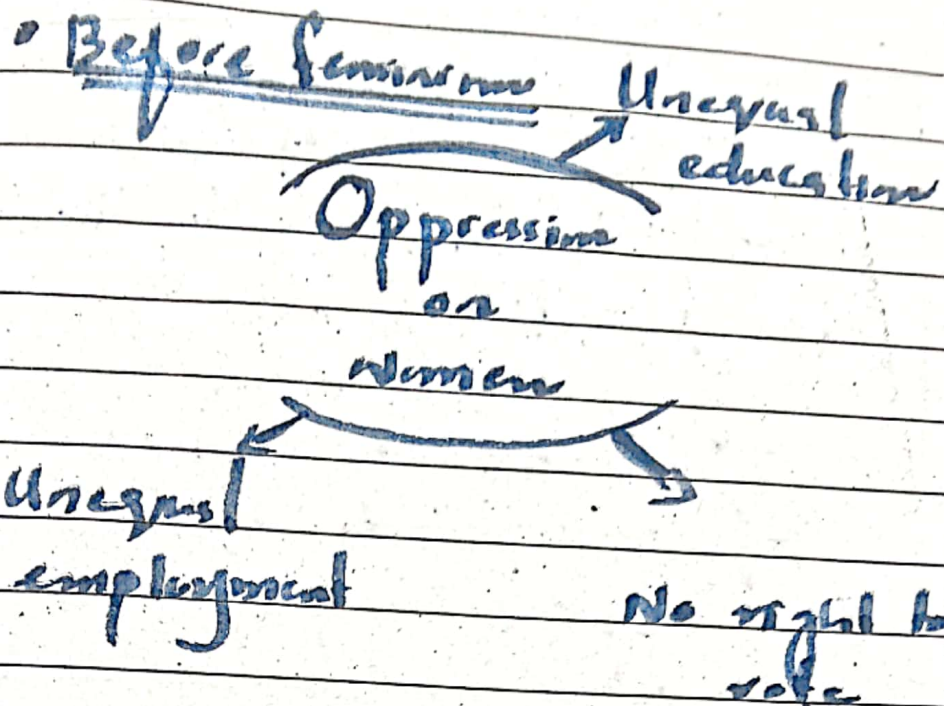 • Before feminism
Unequal
education
Oppression
on
women
Unequal
employment
No right to
vote